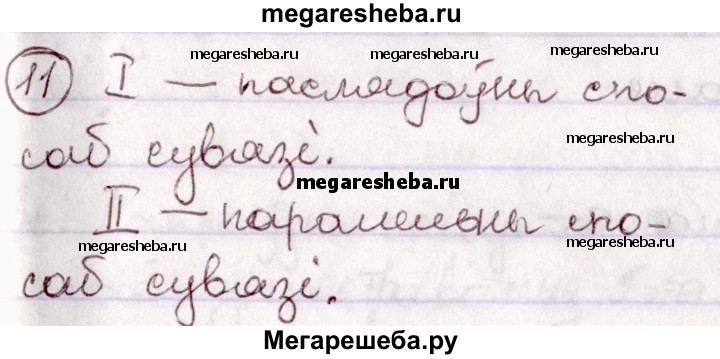 megaresheba.ru
megaresheba.ru megaresheba.ru megaresheba.ru
11 I — паслядоўны спо-
megaresheba.ru
саб сувязі.
megaresheba.ru
II — паралельны спо-
megaresheba.ru megaresheba.ru
саб сувязі.
Мегарешеба.ру